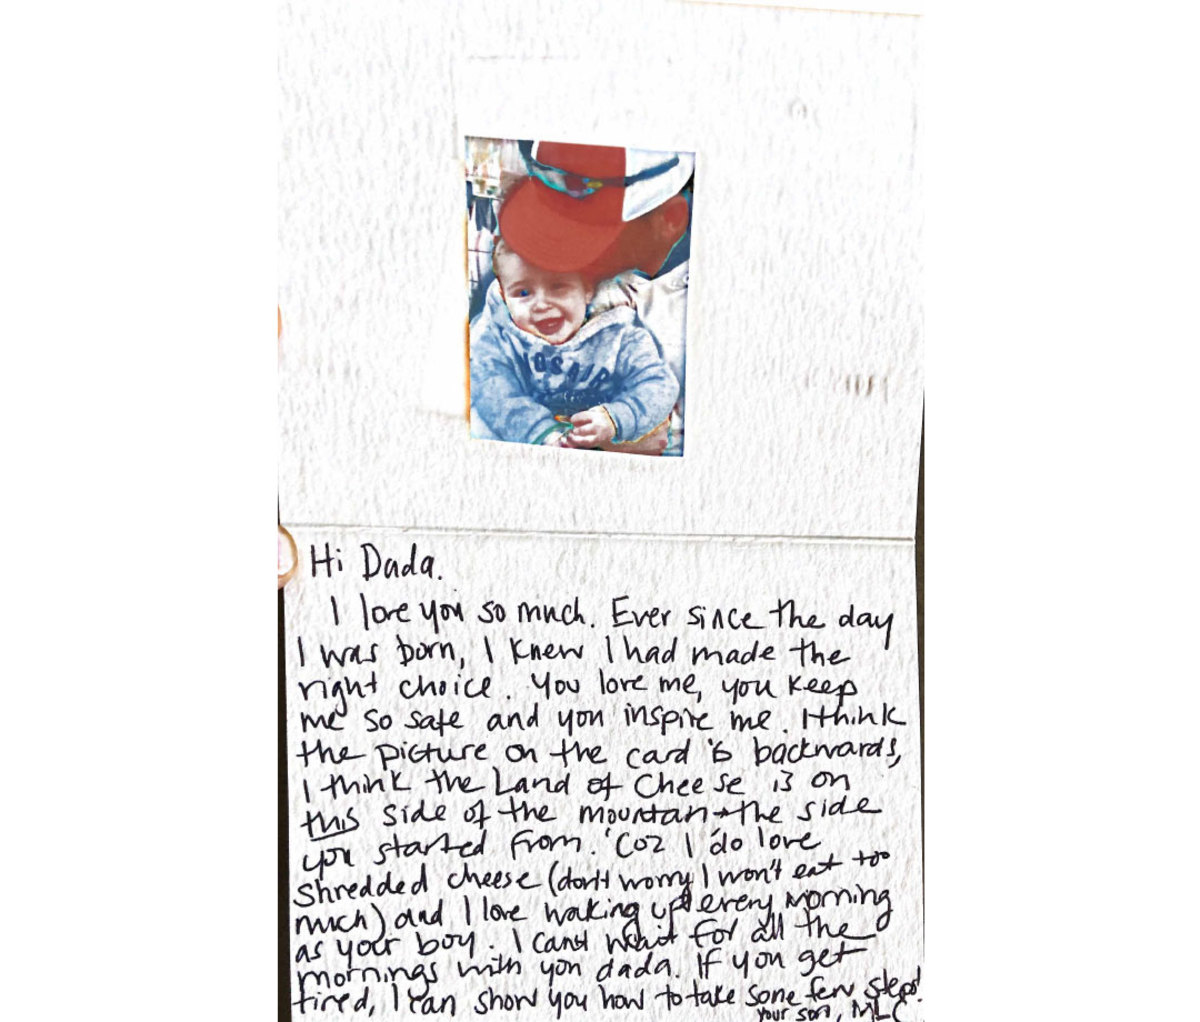 YOSAIR
Hi Dada.
I love you so much. Ever since the day
I was born, I knew I had made the
right choice. You love me, you keep
me so safe and you inspire me. I think
the picture on the card is backwards,
I think the Land of Cheese is on
this side of the mountain → the side
you started from. 'Coz I do love
shredded cheese (don't worry I won't eat too
much) and I love waking up every morning
as your boy. I can't wait for all the
mornings with you dada. If you get
tired, I can show you how to take some few steps!
your son, MLC